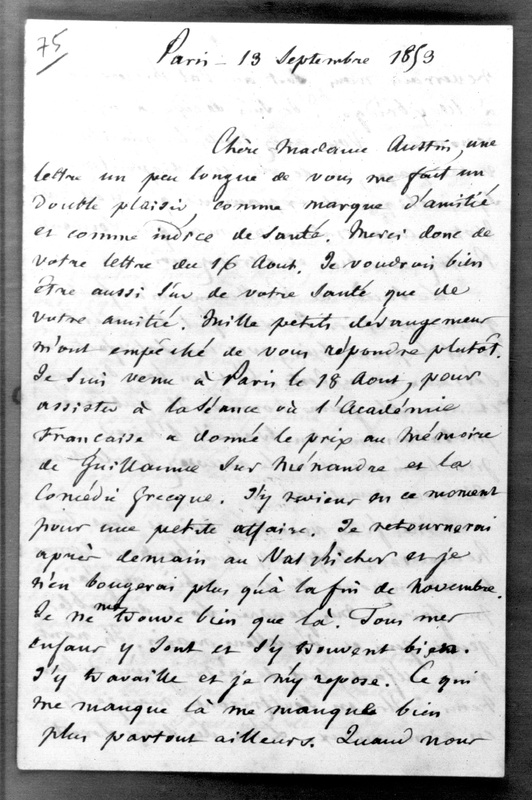 75
Paris - 13 Septembre 1853
Chère Madame Austin, une
lettre un peu longue de vous me fait un
double plaisir, comme marque d'amitié
et comme indice de santé. Merci donc de
votre lettre du 16 Aout. Je voudrais bien
être aussi sûr de votre santé que de
votre amitié. Mille petits dérangemens
m'ont empêché de vous répondre plutôt.
Je suis venu à Paris le 18 Aout, pour
assister à la séance où l'Académie
Française a donné le prix au Mémoire
de Guillaume sur Ménandre et la
Comédie Grecque. J'y reviens en ce moment
pour une petite affaire. Je retournerai
après demain au Val Richer et je
n'en bougerai plus qu'à la fin de novembre.
Je ne me trouve bien que là. Tous mes
enfans y sont et s'y trouvent bien.
J'y travaille et je m'y repose. Ce qui
me manque là me manque bien
plus partout ailleurs. Quand nous